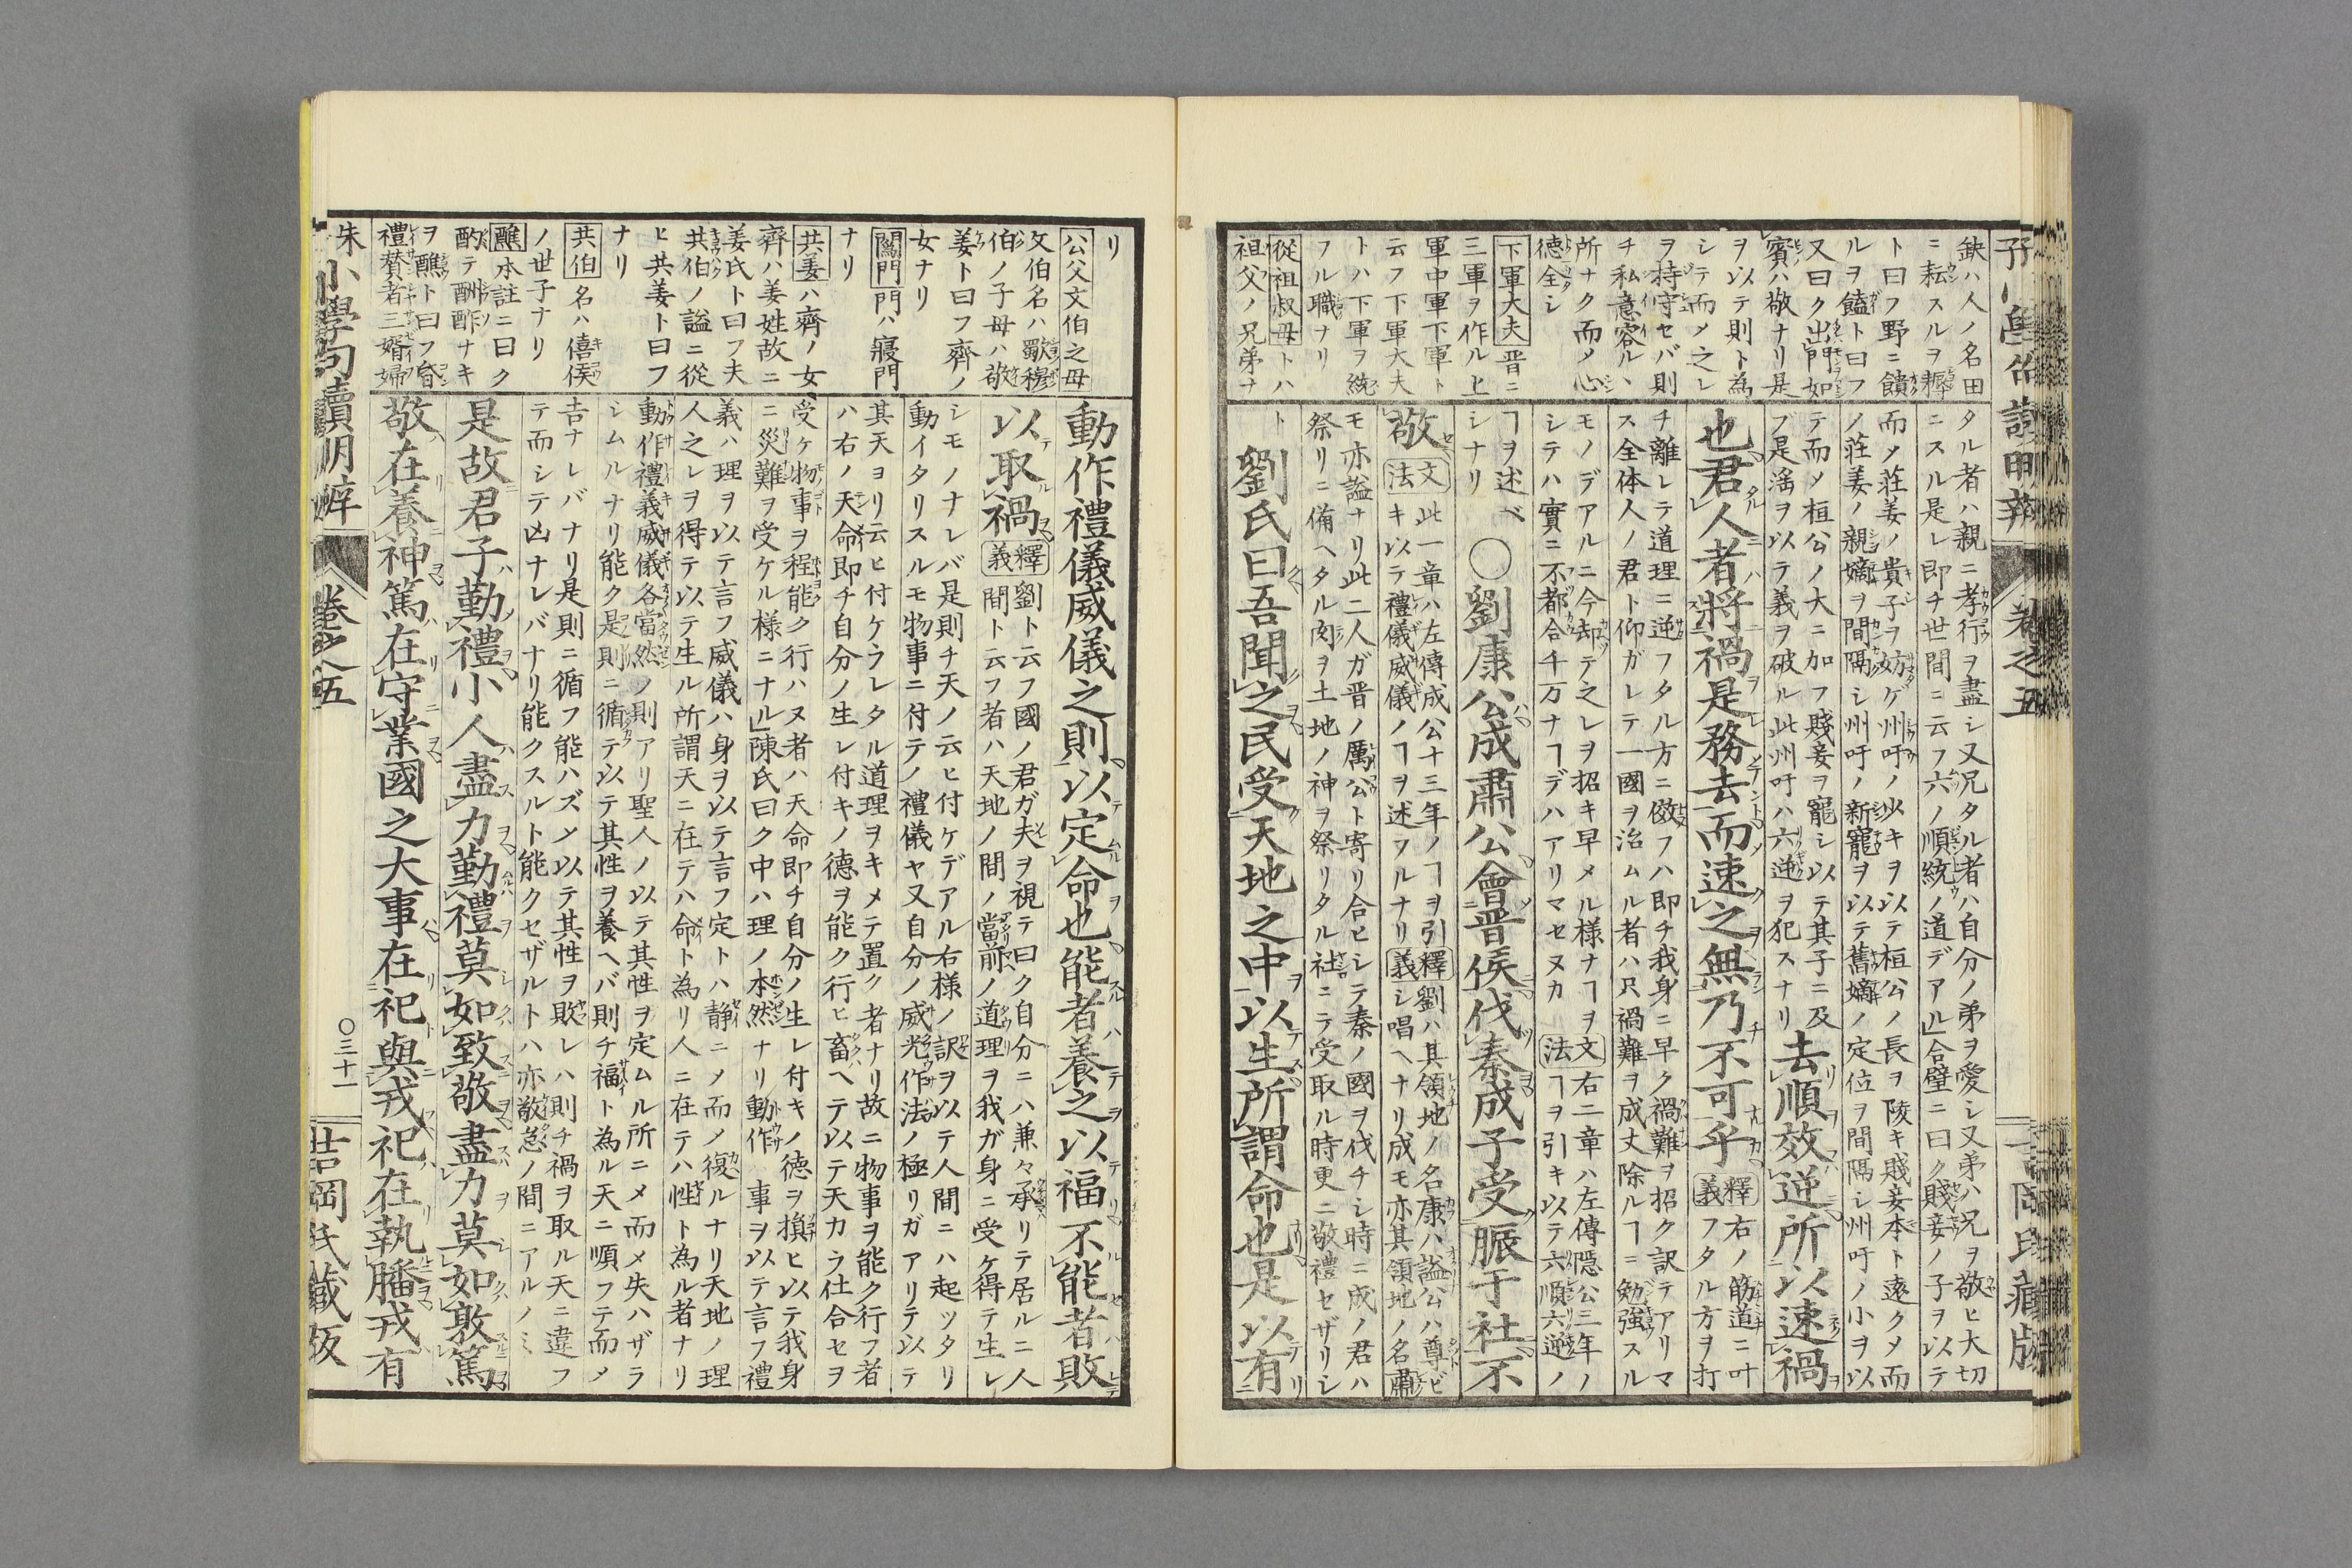 缺ハ人ノ名田
ニ耘スルヲ耨
ト曰フ野ニ饋
ルヲ饁ト曰フ
又曰ク出門如
賓ハ敬ナリ是
ヲ以テ則ト為
シテ而メ之レ
ヲ持守セバ則
チ私意容ルヽ
所ナク而メ心
德全シ
下軍大夫 晋ニ
三軍ヲ作ル上
軍中軍下軍ト
云フ下軍大夫
トハ下軍ヲ統
フル職ナリ
從祖叔母トハ
祖父ノ兄弟ナ
タル者ハ親ニ孝行ヲ盡シ又兄タル者ハ自分ノ弟ヲ愛シ又弟ハ兄ヲ敬ヒ大切
ニスル是レ即チ世間ニ云フ六ノ順統ノ道デアル合璧ニ曰ク賤妾ノ子ヲ以テ
而メ莊姜ノ貴子ヲ妨ゲ州吁ノ少キヲ以テ桓公ノ長ヲ陵キ賤妾本ト遠クメ而
ノ莊姜ノ親嫡ヲ間隔シ州吁ノ新寵ヲ以テ舊嫡ノ定位ヲ間隔シ州吁ノ小ヲ以
テ而メ桓公ノ大ニ加フ賤妾ヲ寵シ以テ其子ニ及
ブ是滛ヲ以テ義ヲ破ル此州吁ハ六逆ヲ犯スナリ
去順效逆所以速禍
也君人者將禍是務去而速之無乃不可乎
釋義 右ノ筋道ニ叶
フタル方ヲ打
チ離レテ道理ニ逆フタル方ニ傚フハ即チ我身ニ早ク禍難ヲ招ク訳テアリマ
ス全体人ノ君ト仰ガレテ一國ヲ治ムル者ハ只禍難ヲ成丈除ルヿニ勉強スル
モノデアルニ今却テ之レヲ招キ早メル様ナヿヲ
シテハ實ニ不都合千万ナヿデハアリマセヌカ
文法 右二章ハ左傳隱公三年ノ
ヿヲ引キ以テ六順六逆ノ
ヿヲ述ベ
シナリ
○劉康公成肅公會晋侯伐秦成子受脤于社不
敬
文法 此一章ハ左傳成公十三年ノヿヲ引
キ以テ禮儀威儀ノヿヲ述フルナリ
釋義 劉ハ其領地ノ名康ハ謚公ハ尊ビ
シ唱ヘナリ成モ亦其領地ノ名肅
モ亦謚ナリ此二人ガ晋ノ厲公ト寄リ合ヒシテ秦ノ國ヲ伐チシ時ニ成ノ君ハ
祭リニ備ヘタル肉ヲ土地ノ神ヲ祭リタル社ニテ受取ル時更ニ敬禮セザリシ
ト
劉氏曰吾聞之民受天地之中以生所謂命也是以有
リ
公父文伯之母
文伯名ハ歜穆
伯ノ子母ハ敬
姜ト曰フ齊ノ
女ナリ
闈門 門ハ寢門
ナリ
共姜ハ齊ノ女
齊ハ姜姓故ニ
姜氏ト曰フ夫
共伯ノ謚ニ從
ヒ共姜ト曰フ
ナリ
共伯 名ハ僖侯
ノ世子ナリ
醮 本註ニ曰ク
酌テ酬酢ナキ
ヲ醮ト曰フ昏
禮賛者三婿婦
動作禮儀威儀之則以定命也能者養之以福不能者敗
以取禍
釋義 劉ト云フ國ノ君ガ夫ヲ視テ曰ク自分ニハ兼々承リテ居ルニ人
間ト云フ者ハ天地ノ間ノ當前ノ道理ヲ我ガ身ニ受ケ得テ生レ
シモノナレバ是則チ天ノ云ヒ付ケデアル右様ノ訳ヲ以テ人間ニハ起ツタリ
動イタリスルモ物事ニ付テノ禮儀ヤ又自分ノ威光作法ノ極リガアリテ以テ
其天ヨリ云ヒ付ケラレタル道理ヲキメテ置ク者ナリ故ニ物事ヲ能ク行フ者
ハ右ノ天命即チ自分ノ生レ付キノ德ヲ能ク行ヒ畜ヘテ以テ天カラ仕合セヲ
受ケ物事ヲ程能ク行ハヌ者ハ天命即チ自分ノ生レ付キノ德ヲ損ヒ以テ我身
ニ災難ヲ受ケル様ニナル陳氏曰ク中ハ理ノ本然ナリ動作 事ヲ以テ言フ禮
義ハ理ヲ以テ言フ威儀ハ身ヲ以テ言フ定トハ靜ニメ而ノ復ルナリ天地ノ理
人之レヲ得テ以テ生ル所謂天ニ在テハ命ト為リ人ニ在テハ性ト為ル者ナリ
動作禮義威儀各當然ノ則アリ聖人ノ以テ其性ヲ定ムル所ニメ而メ失ハザラ
シムルナリ能ク是則ニ循テ以テ其性ヲ養ヘバ則チ福ト為ル天ニ順フテ而メ
吉ナレバナリ是則ニ循フ能ハズメ以テ其性ヲ敗レハ則チ禍ヲ取ル天ニ違フ
テ而シテ凶ナレバナリ能クスルト能クセザルトハ亦敬怠ノ間ニアルノミ
是故君子勤禮小人盡力勤禮莫如致敬盡力莫如敦篤
敬在養神篤在守業國之大事在祀與戎祀在執膰戎有
朱小學句讀明辨 卷之五 ○三十一 吉岡氏藏版